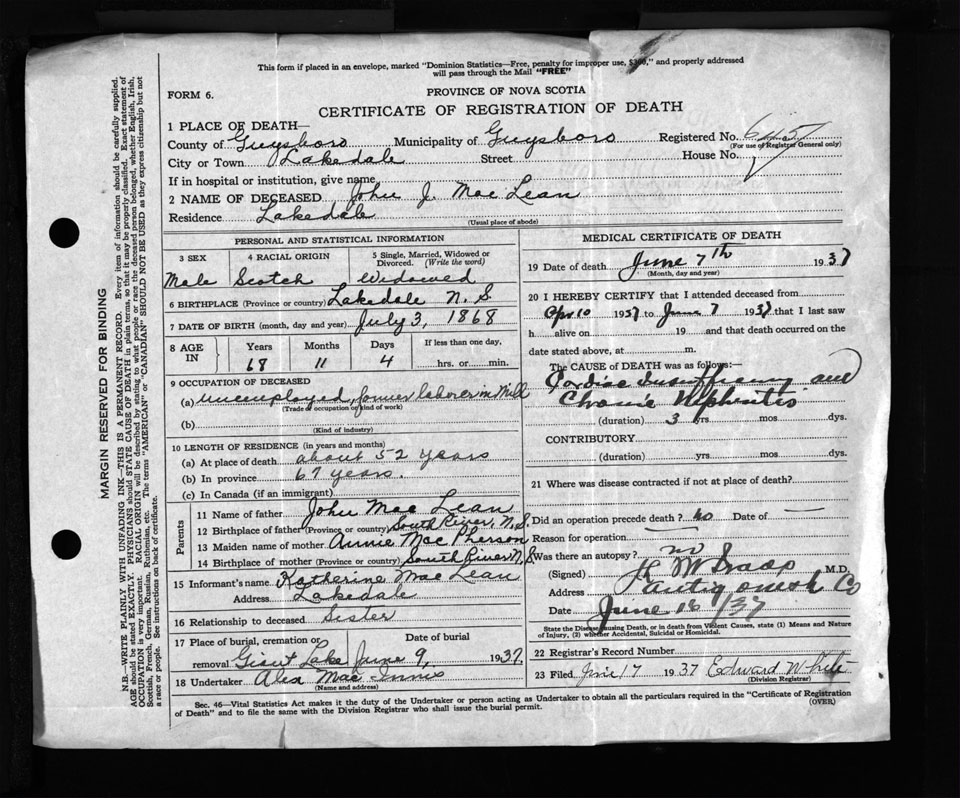 This form if placed in an envelope, marked "Dominion Statistics—Free, penalty for improper use, $300," and properly addressed
will pass through the Mail "FREE"
FORM 6.
PROVINCE OF NOVA SCOTIA
CERTIFICATE OF REGISTRATION OF DEATH
1 PLACE OF DEATH—
County of Guysboro Municipality of Guysboro Registered No.
(For use of Registrar General only)
City or Town Lakedale Street House No.
If in hospital or institution, give name
2 NAME OF DECEASED John J. Mac Lean
Residence Lakedale
(Usual place of abode)
PERSONAL AND STATISTICAL INFORMATION
3 SEX 4 RACIAL ORIGIN 5 Single, Married, Widowed or Divorced. (Write the word)
Male Scotch Widowed
6 BIRTHPLACE (Province or country) Lakedale N.S
7 DATE OF BIRTH (month, day and year) July 3, 1868
8 AGE IN Years Months Days If less than one day,
68 11 4 hrs. or min.
9 OCCUPATION OF DECEASED
(a) unemployed, former laborer in Mill
(Trade of occupation or kind of work)
(b)
(Kind of industry)
10 LENGTH OF RESIDENCE (in years and months)
(a) At place of death about 52 years
(b) In province 67 years.
(c) In Canada (if an immigrant)
Parents
11 Name of father John Mac Lean
12 Birthplace of father (Province or country) South River, N.S.
13 Maiden name of mother Annie Mac Pherson
14 Birthplace of mother (Province or country) South River N.S
15 Informant's name Katherine Mac Lean
Address Lakedale
16 Relationship to deceased Sister
17 Place of burial, cremation or removal Date of burial
Giant Lake June 9, 1937.
18 Undertaker Alex Mac Innis
(Name and address)
MEDICAL CERTIFICATE OF DEATH
19 Date of death June 7th 1937
(Month, day and year)
20 I HEREBY CERTIFY that I attended deceased from
Apr 10 1937 to June 7 1937 that I last saw
h alive on 19 and that death occurred on
date stated above, at m.
The CAUSE of DEATH was as follows:—
Cardiac Insufficiency and
Chronic Nephritis
(duration) 3 yrs mos dys.
CONTRIBUTORY
(duration) yrs mos dys.
21 Where was disease contracted if not at place of death?
Did an operation precede death? no Date of —
Reason for operation —
Was there an autopsy? no
(Signed) M.D.
Address Antigonish Co
Date June 16/37
State the Disease causing Death, or in death from Violent Causes, state (1) Means and Nature
of Injury, (2) whether Accidental, Suicidal or Homicidal.
22 Registrar's Record Number
23 Filed June 17 1937 Edward White
(Division Registrar)
Sec. 46—Vital Statistics Act makes it the duty of the Undertaker or person acting as Undertaker to obtain all the particulars required in the "Certificate of Registration
of Death" and to file the same with the Division Registrar who shall issue the burial permit.
(OVER)
MARGIN RESERVED FOR BINDING
N.B.—WRITE PLAINLY WITH UNFADING INK—THIS IS A PERMANENT RECORD. Every item of information should be carefully supplied.
AGE should be stated EXACTLY. PHYSICIANS should STATE CAUSE OF DEATH in plain terms, so that it may be properly classified. Exact statement of
OCCUPATION is very important. RACIAL ORIGIN will be described by stating to what people or race the deceased person belonged, whether English, Irish,
Scottish, French, German, Russian, Ruthenian, etc. The terms "AMERICAN" or "CANADIAN" SHOULD NOT BE USED as they express citizenship but not
a race or people. See instructions on back of certificate.